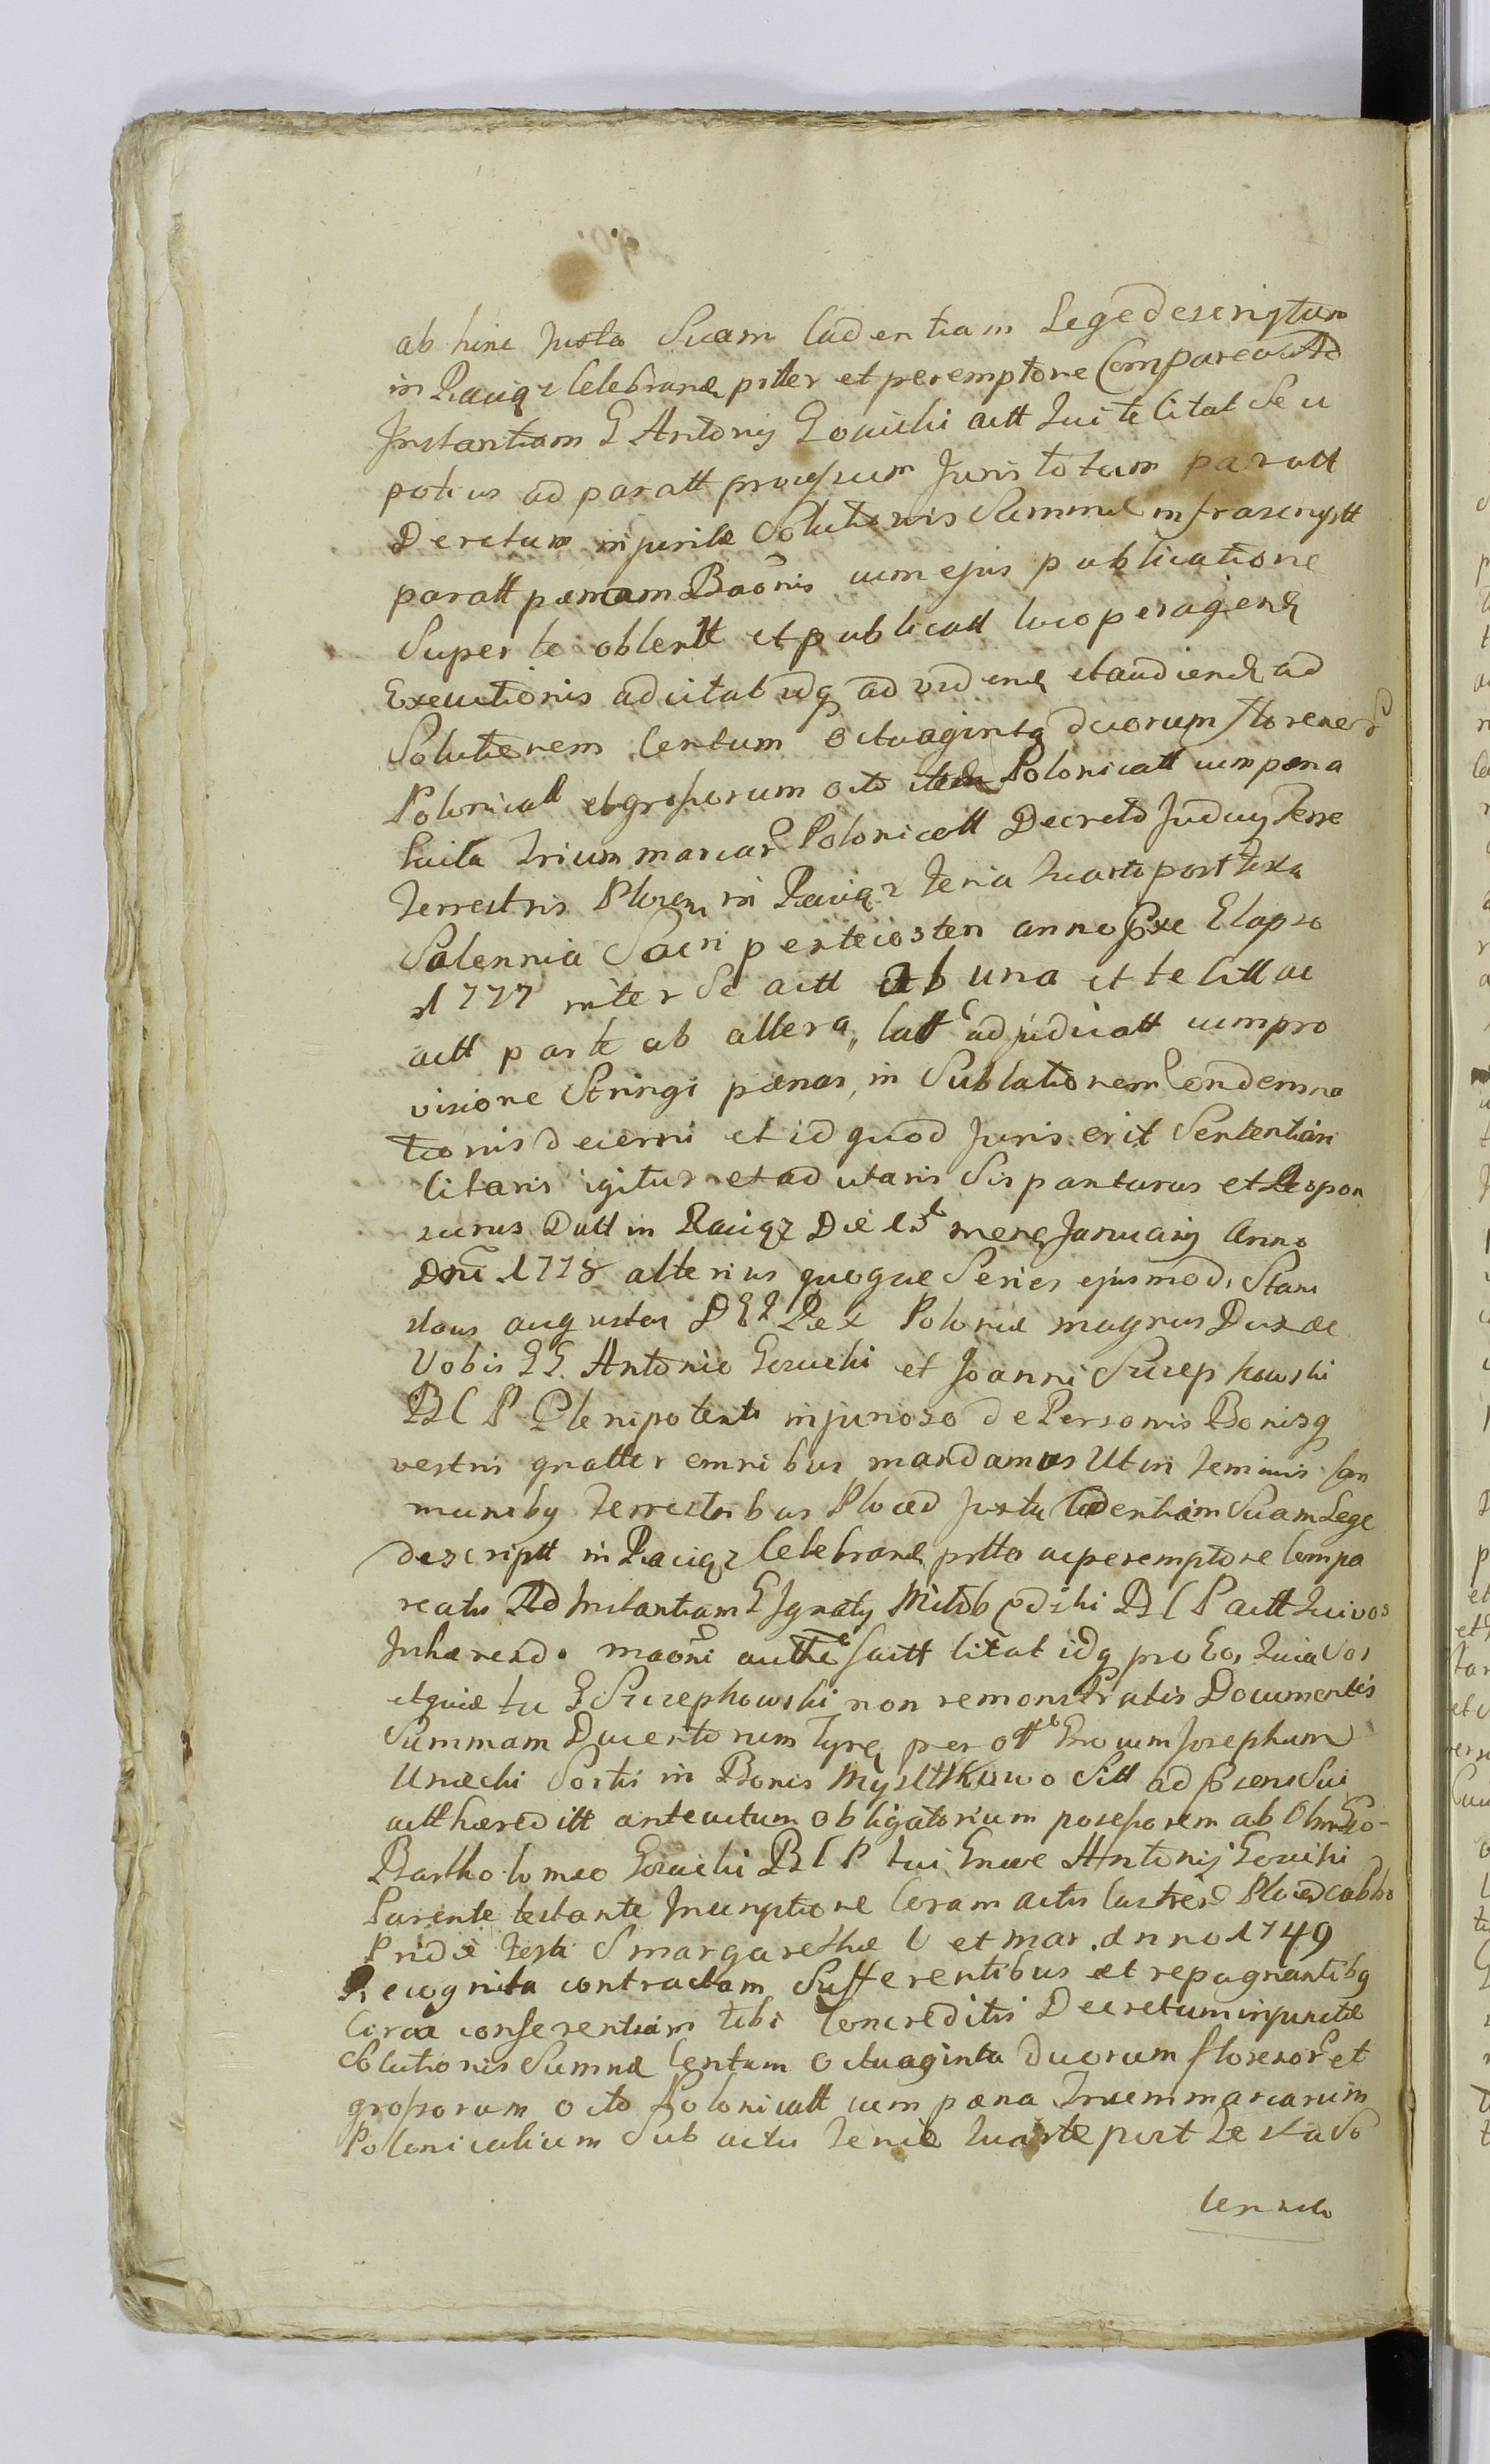 ab hinc Juxta Suam Cadentiam Lege descriptam
in Raciąz Celebrand psller et peremptorie Compareas Ad
Instantiam G Antonij Gozuchi actt Qui te Citat Seu
potius ad paratt processum Juris totum paratt
Decretum injunctæ Solutionis Summæ infrascriptt
paratt pœnam Baōnis cum ejus publicatione
Super te obtentt et publicatt loco peragend
Executionis adcitat idq ad vidend et audiend ad
Solutionem Centum Octuaginta duorum florenor
Polonicall et grossorum octo Polonicatt cum pæna
Luita Trium marcar Polonicall Decreto Judicij Terre
Terrestris Plocen in Raciąz Feria Quarta post Festa
Solennia Sacri pentecosten anno Pxe Elapso
1777 inter Se actt ab una et te Citt ac
actt parte ab altera, latt adjudicatt cum pro
visione Stringi pænas, in Sublationem Condemna
tionis decerni et id quod Juris erit Sententiari
Citaris igitur et adcitaris Sis pariturus et Respon
surus Datt in Raciąz Die mens Januarij Anno
Dni 1778 alterius quoque Series ejusmodi Stani
slaus augustus D G Rex Poloniæ magnus Dux &c
Vobis GG. Antonio Gozuchi et Joanni Szczepkowski
B C P Plenipotenti injurioso de Personis Bonisq
vestris gnatter omnibus mandamus Ut in Terminis Com
munibq Terrestribus Ploced Juxta Cadentiam Suam Lege
descriptt in Raciąz Celebrand psller ac peremptorie Compa
reatis Ad Instantiam G Ignatij Miłobędzki B C P actt Qui vos
Inhærendo maōni citat idq pro Eo, Quia Vos
et quia tu G Szczepkowski non remonstratis Documentis
Summam Ducentorum Tynf per ott Gnosum Josephum
Unæchi Sortis in Bonis Myszltkowo Sitt ad psens Sui
actt hæreditt anteactum obligatorium possessorem ab Olim Gso-
Bartholomæo Gozuchi B C P tui Gnose Antonij Gozuchi
Parente testante Inscriptione Coram actis Castren Ploced Sabbo
Pridie Festi S margarethæ V et mar. Anno 1749
Recognita contractam Sufferentibus et repugnantibq
Circa conferentiam tibi Concreditis Decretum injunctæ
Solutionis Summæ Centum Octuaginta Duorum florenor et
grossorum octo Polonicatt cum pæna Trium marcarum
Polonicalium Sub actu Feriæ Quartæ post Festa So
lennia